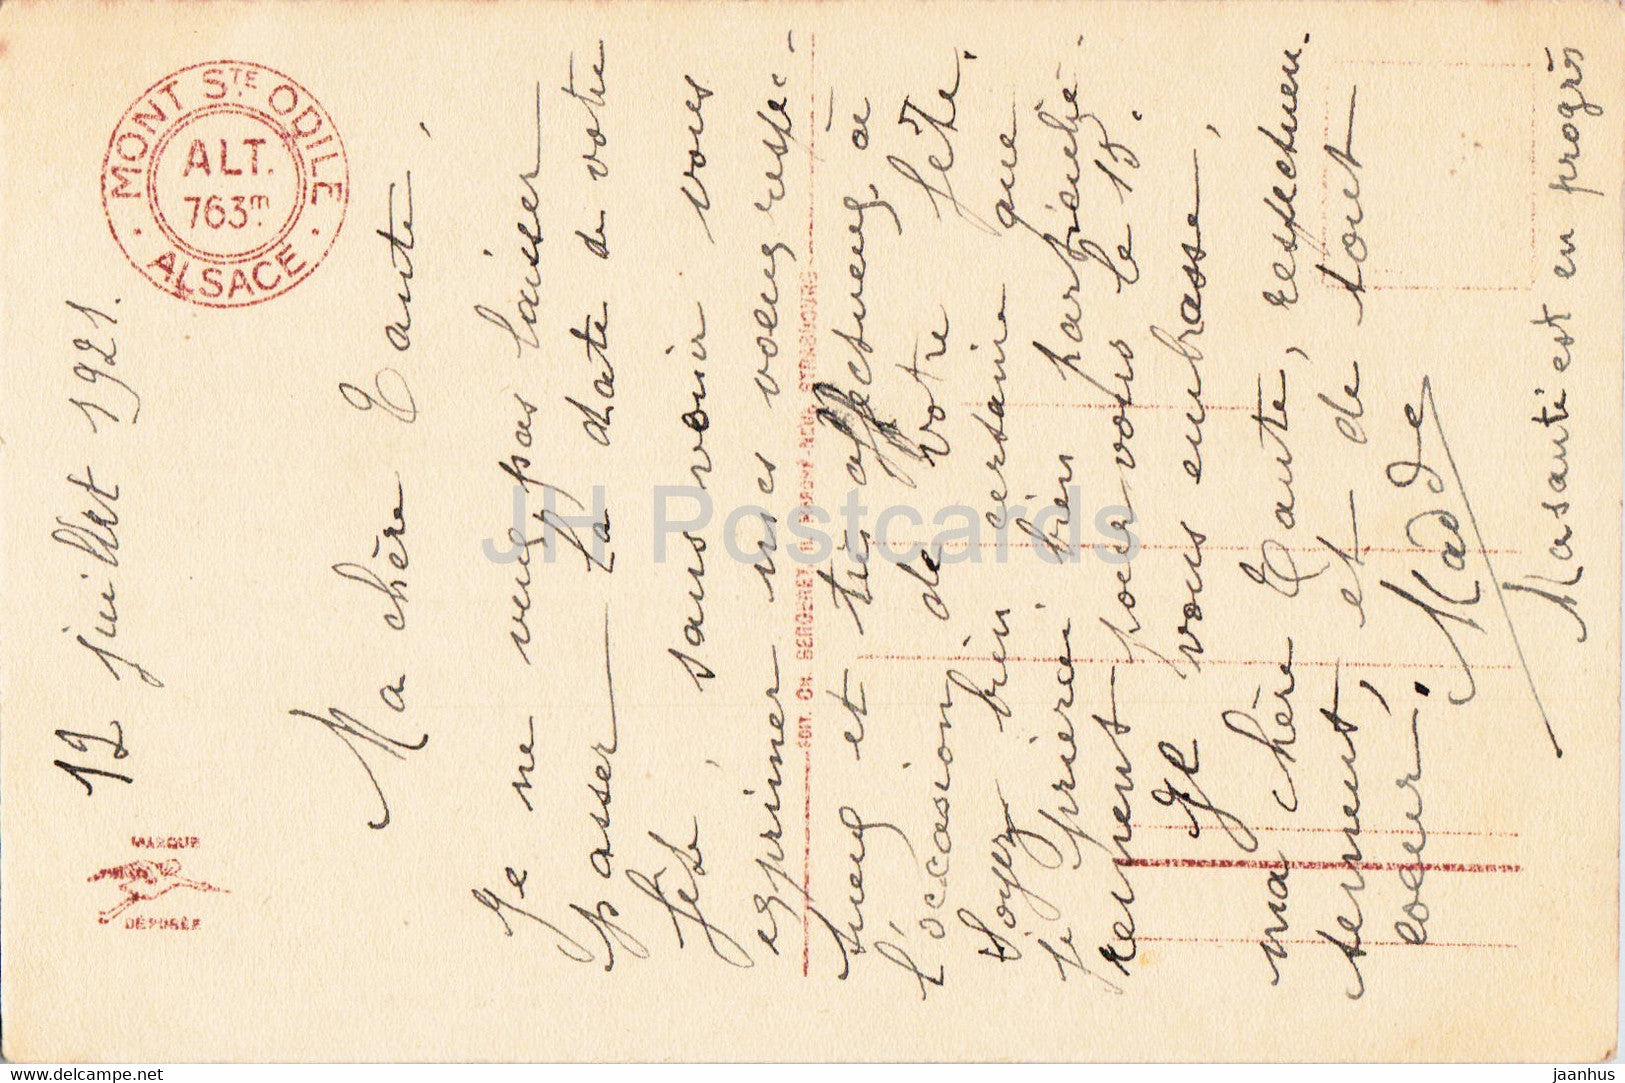 12 juillet 1921.
Ma chère Tante,
Je ne veux pas laisser
passer la date de votre
fête, sans venir vous
exprimer mes voeux respec-
tueux et très affectueux, à
l'occasion de votre fête.
Soyez bien certaine que
je prierai bien particuliè-
rement pour vous le 15.
Je vous embrasse,
ma chère Tante, respectueu-
sement, et de tout
coeur.
Madde
Ma santé est en progrès
MONT STE ODILE
ALT.
763m
ALSACE
MARQUE
DÉPOSÉE
EDIT. CH. BERGERET
STRASBOURG
JH Postcards
www.delcampe.net
jaanhus